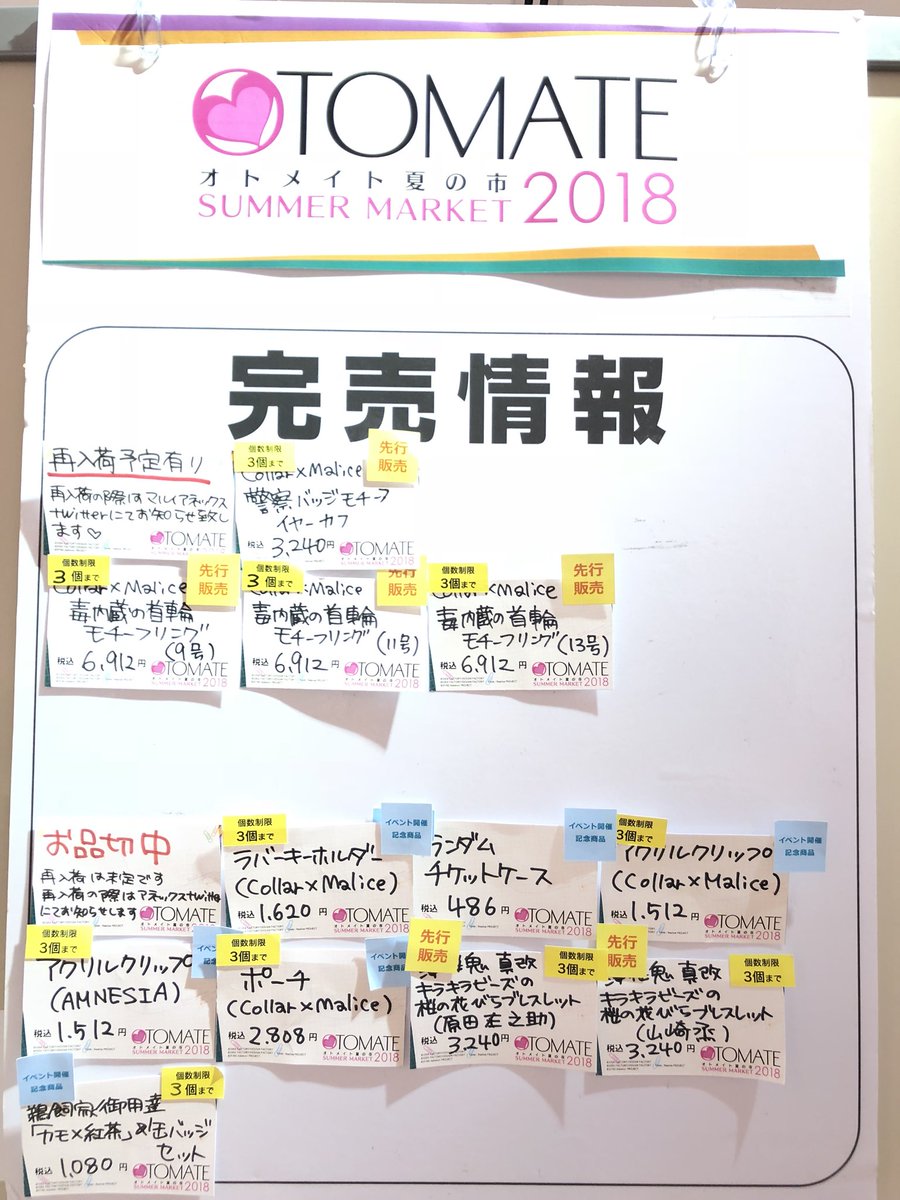 OTOMATE
オトメイト夏の市
SUMMER MARKET 2018
完売情報
再入荷予定有り
再入荷の際はマルイアネックス
twitterにてお知らせ致し
ます♡
OTOMATE
個数制限
3個まで
先行
販売
Collar×Malice
警察バッジモチーフ
イヤーカフ
税込 3,240円
OTOMATE
オトメイト夏の市
SUMMER MARKET 2018
個数制限
3個まで
先行
販売
Collar×Malice
毒内蔵の首輪
モチーフリング
(9号)
税込 6,912円
OTOMATE
オトメイト夏の市
SUMMER MARKET 2018
個数制限
3個まで
先行
販売
Collar×Malice
毒内蔵の首輪
モチーフリング
(11号)
税込 6,912円
OTOMATE
オトメイト夏の市
SUMMER MARKET 2018
個数制限
3個まで
先行
販売
Collar×Malice
毒内蔵の首輪
モチーフリング
(13号)
税込 6,912円
OTOMATE
オトメイト夏の市
SUMMER MARKET 2018
お品切中
再入荷は未定です
再入荷の際はアネックスtwitter
にてお知らせします
OTOMATE
SUMMER MARKET 2018
個数制限
3個まで
イベント開催
記念商品
ラバーキーホルダー
(Collar×Malice)
税込 1.620円
OTOMATE
オトメイト夏の市
SUMMER MARKET 2018
イベント開催
記念商品
ランダム
チケットケース
税込 486円
OTOMATE
オトメイト夏の市
SUMMER MARKET 2018
個数制限
3個まで
イベント開催
記念商品
アクリルクリップ
(Collar×Malice)
税込 1.512円
OTOMATE
オトメイト夏の市
SUMMER MARKET 2018
個数制限
3個まで
アクリルクリップ
(AMNESIA)
税込 1.512円
OTOMATE
オトメイト夏の市
SUMMER MARKET 2018
個数制限
3個まで
イベント開催
記念商品
ポーチ
(Collar×Malice)
税込 2.808円
OTOMATE
オトメイト夏の市
SUMMER MARKET 2018
先行
販売
個数制限
3個まで
鬼 真改
キラキラビーズの
桜の花びらブレスレット
(原田左之助)
税込 3.240円
OTOMATE
オトメイト夏の市
SUMMER MARKET 2018
先行
販売
個数制限
3個まで
鬼 真改
キラキラビーズの
桜の花びらブレスレット
(山崎烝)
税込 3.240円
OTOMATE
オトメイト夏の市
SUMMER MARKET 2018
イベント開催
記念商品
個数制限
3個まで
鵜飼家御用達
「カモ×紅茶」&缶バッジ
セット
税込 1,080円
OTOMATE
オトメイト夏の市
SUMMER MARKET 2018